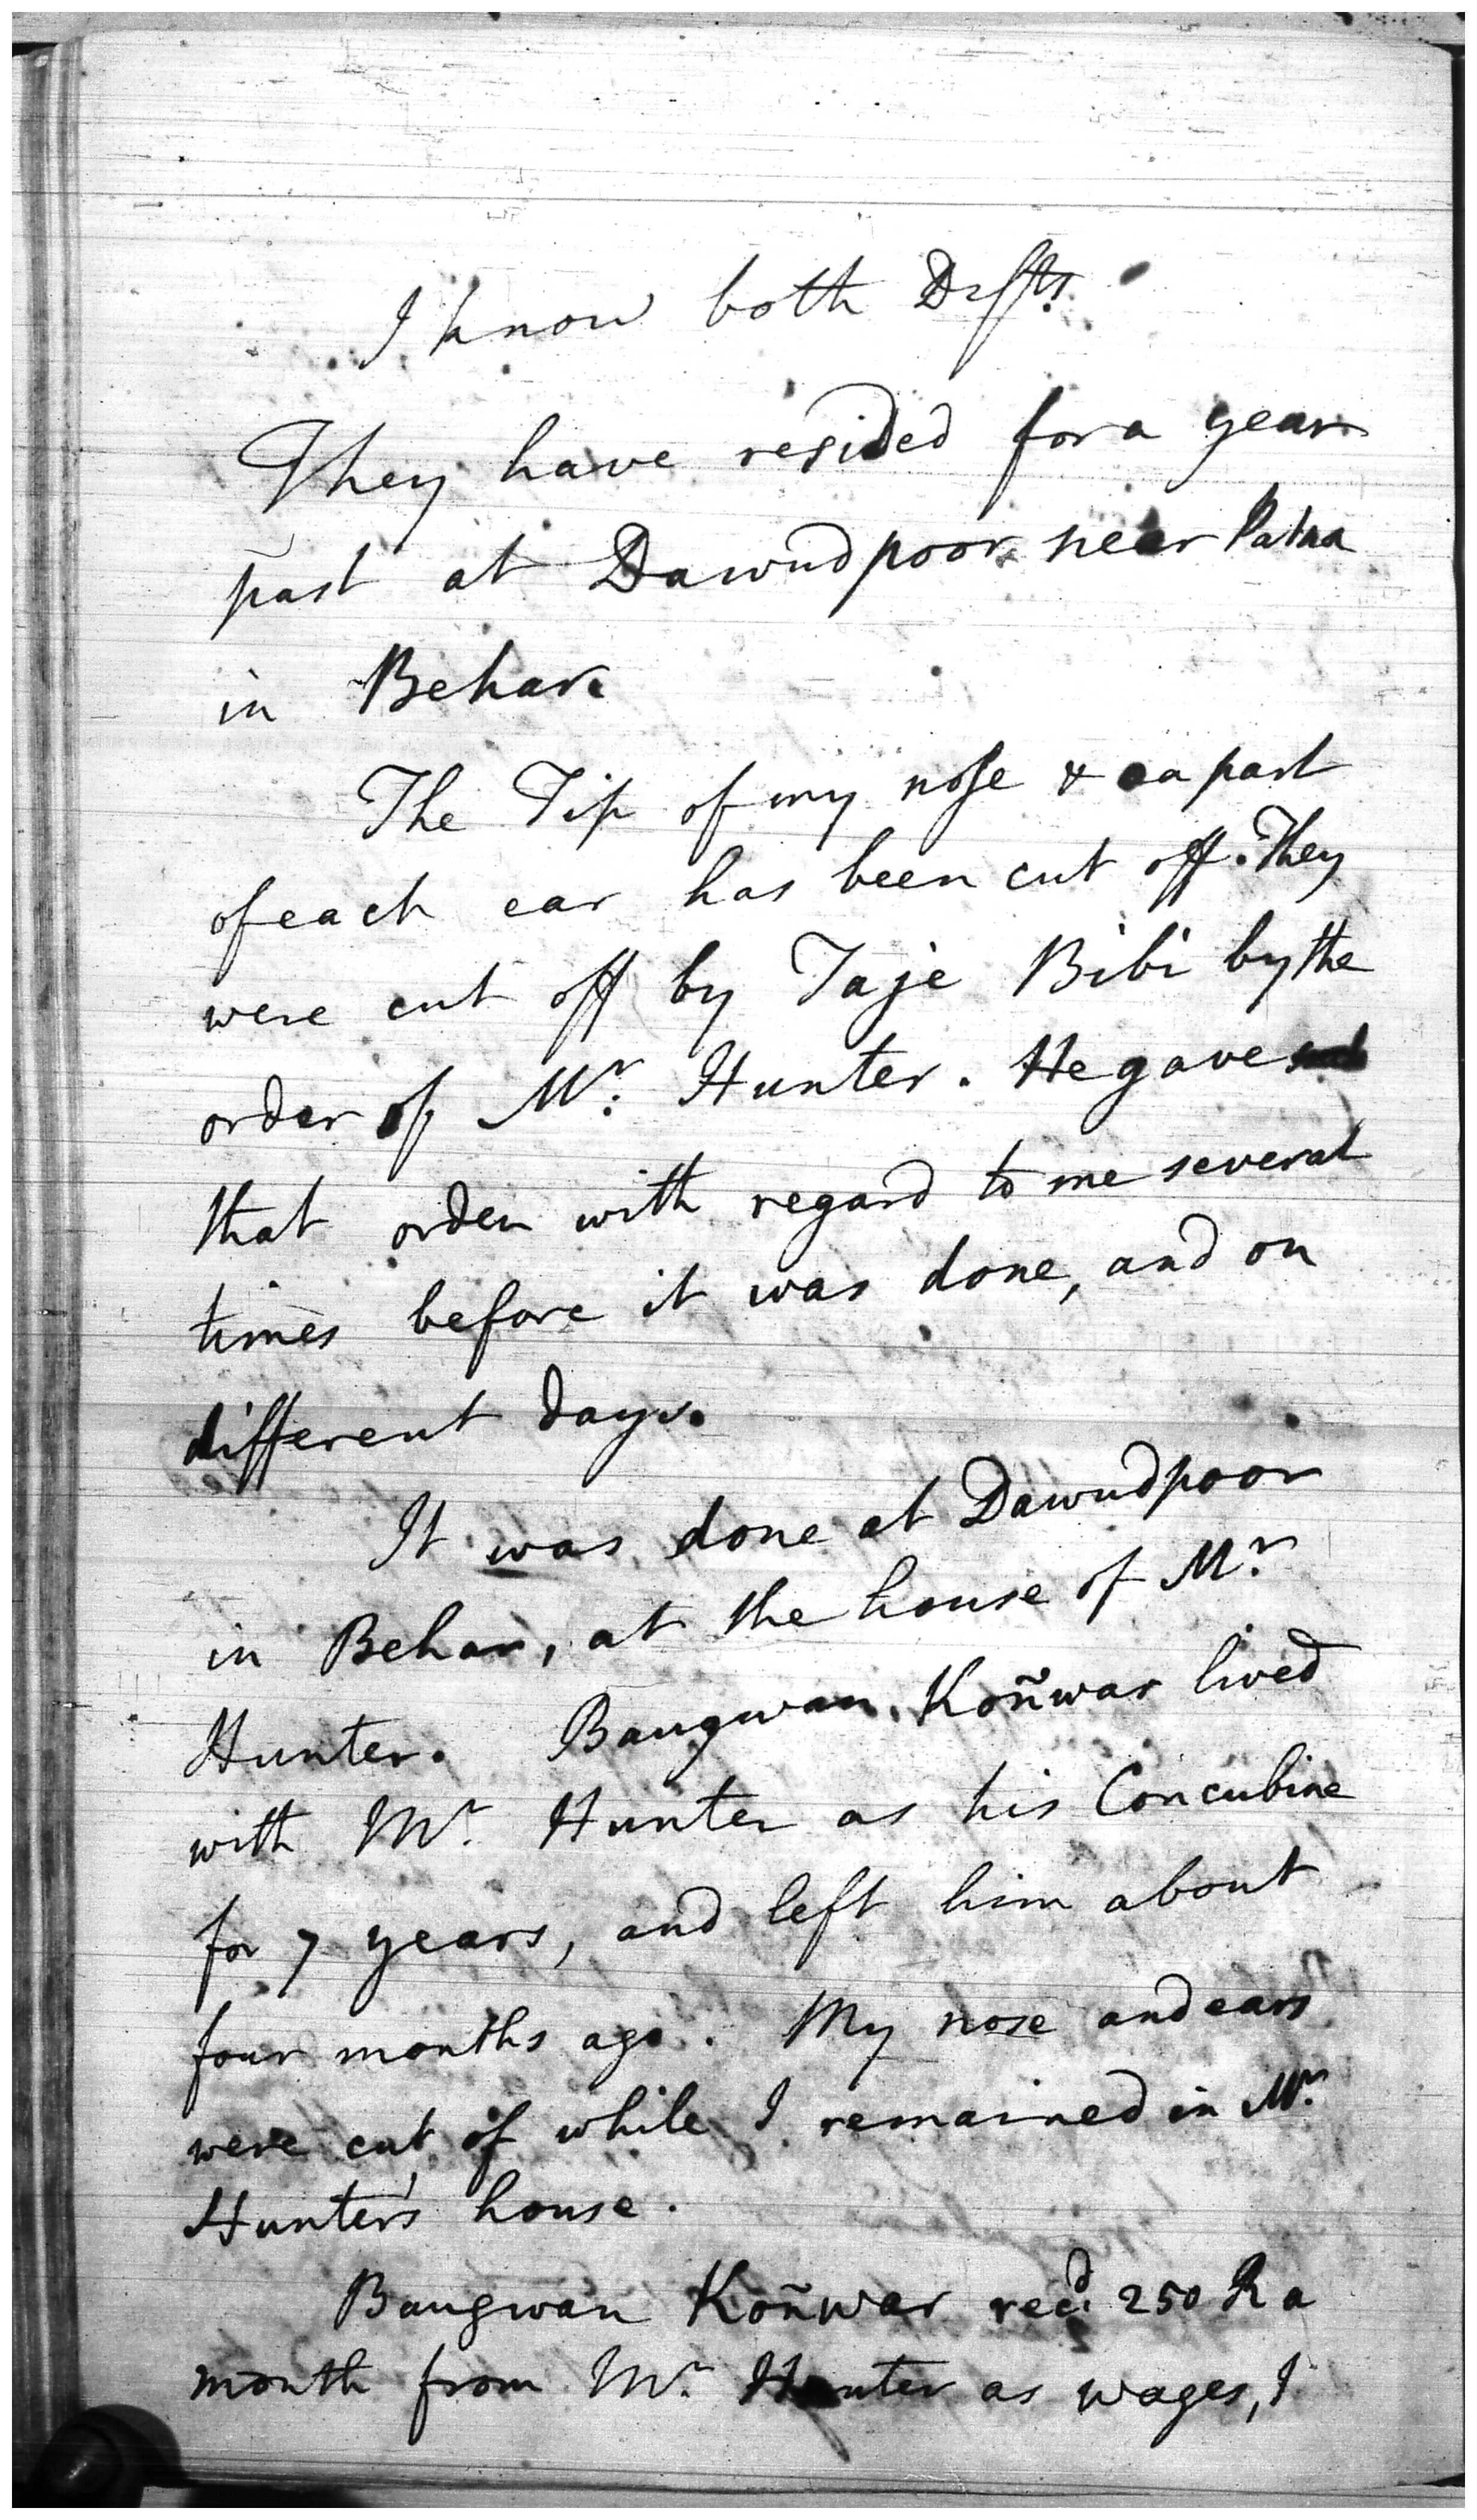 I know both Defts.
They have resided for a year
past at Dawudpoor near Patna
in Behar.
The Tip of my nose & a part
of each ear has been cut off. They
were cut off by Taje Bibi by the
order of Mr. Hunter. He gave
that order with regard to me several
times before it was done, and on
different days.
It was done at Dawudpoor
in Behar, at the house of Mr.
Hunter. Baugwan Koñwar lived
with Mr. Hunter as his Concubine
for 7 years, and left him about
four months ago. My nose and ears
were cut of while I remained in Mr.
Hunter's house.
Baugwan Koñwar recd. 250 R a
month from Mr. Hunter as wages, I